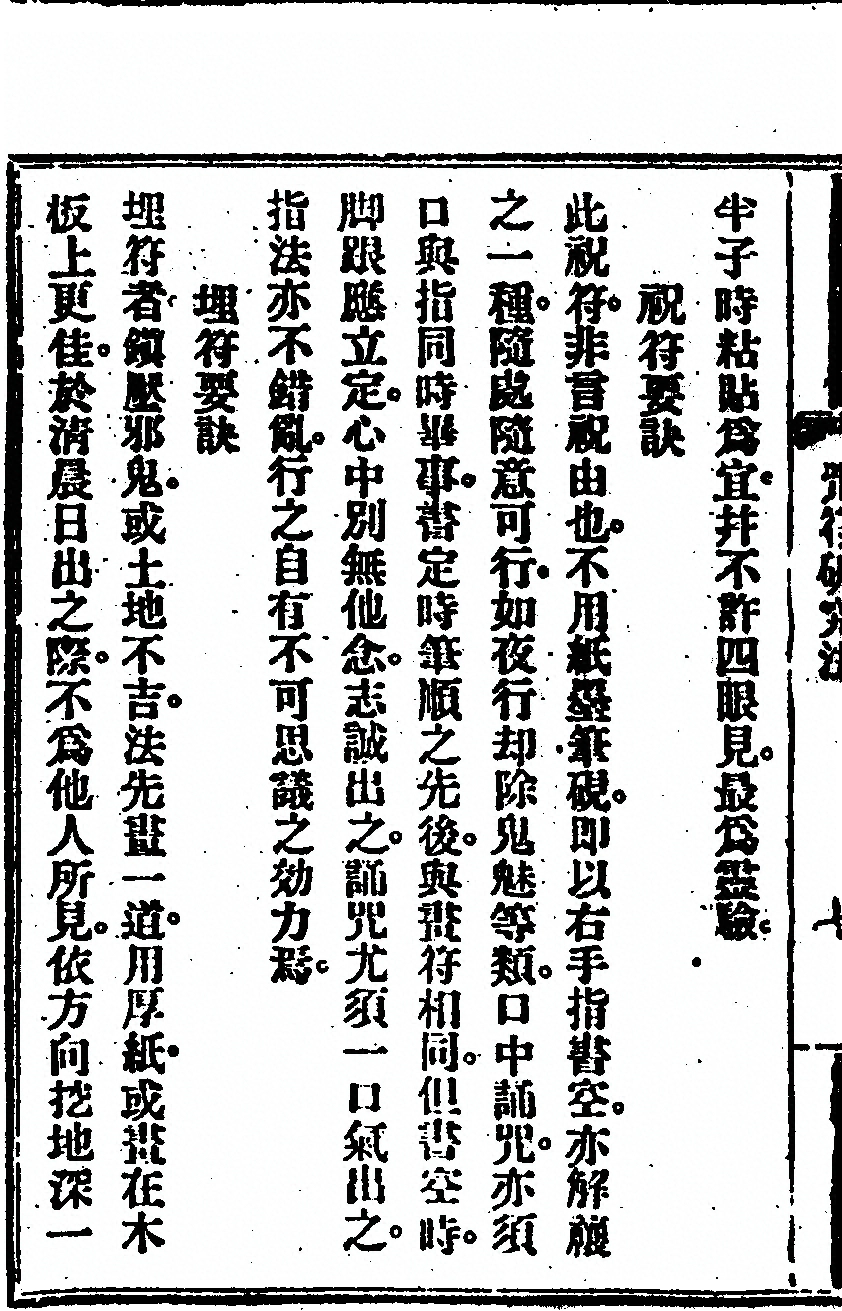 咒符研究法
七
半子時粘貼爲宜。幷不許四眼見。最爲靈驗。
祝符要訣
此祝符。非言祝由也。不用紙墨筆硯。即以右手指書空。亦解禳
之一種。隨處隨意可行。如夜行却除鬼魅等類。口中誦咒。亦須
口與指同時畢事。書定時筆順之先後。與畫符相同。但書空時。
脚跟應立定。心中別無他念。志誠出之。誦咒尤須一口氣出之。
指法亦不錯亂。行之自有不可思議之効力焉。
埋符要訣
埋符者鎭壓邪鬼。或土地不吉。法先畫一道。用厚紙。或畫在木
板上更佳。於清晨日出之際。不爲他人所見。依方向挖地深一